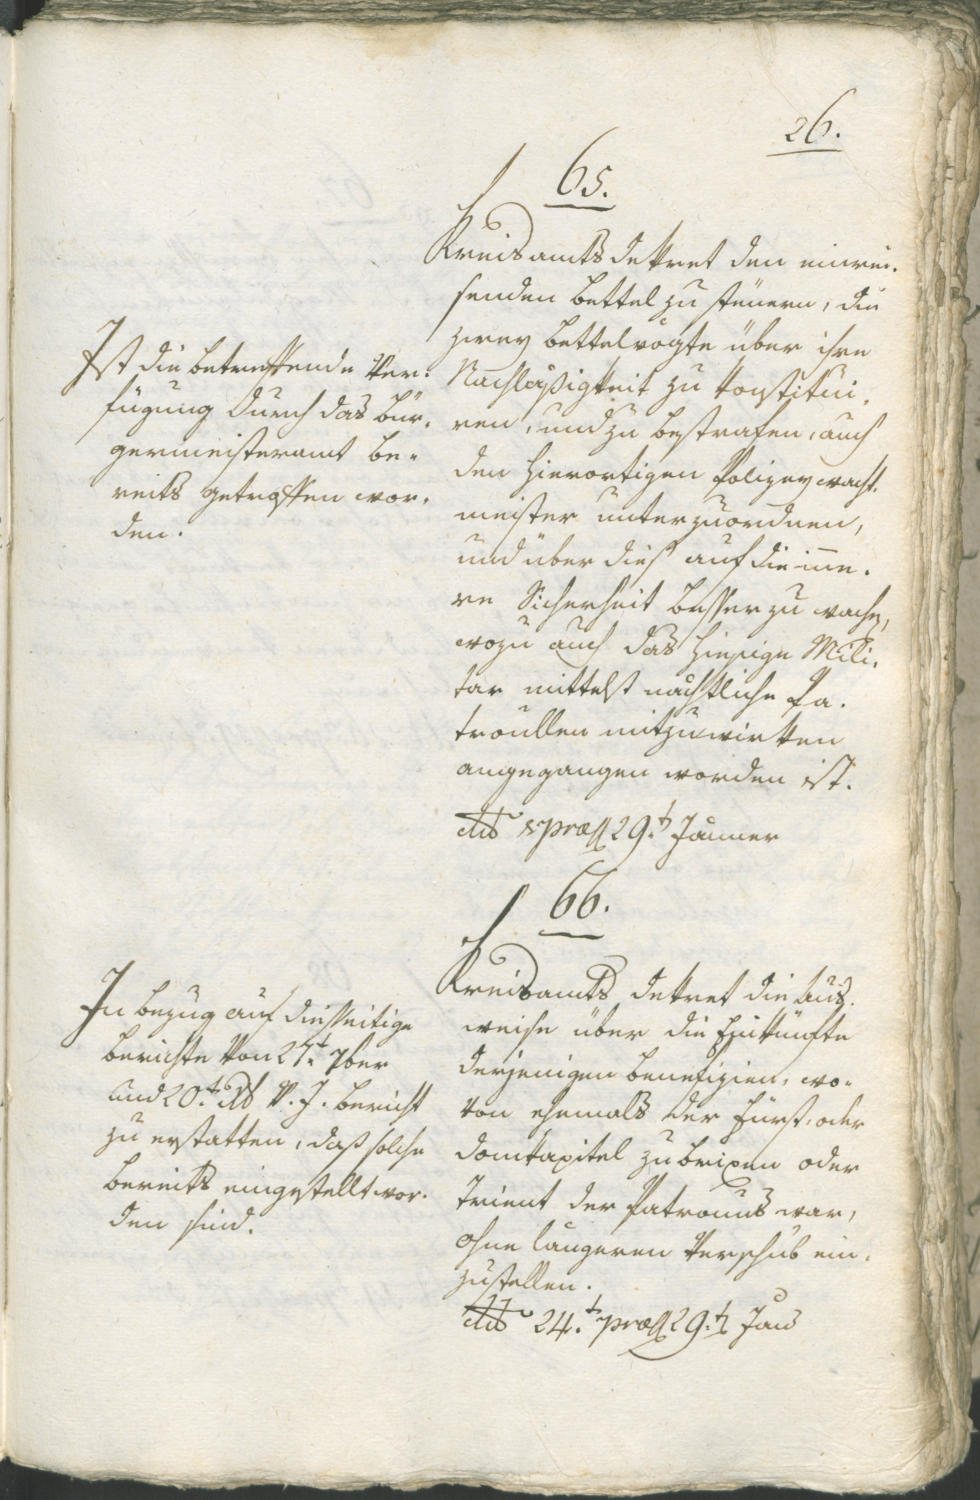 26.
65.
Kreisamtsdekret den einrei-
senden Bettel zu steuern, die
zwey Bettelvögte über ihre
Nachläßigkeit zu konstitui-
ren, und zu bestrafen, auch
den hierortigen Polizeywacht-
meister unterzuordnen,
und über dieß auf die inne-
re Sicherheit besser zu wachen,
wozu auch das hiesige Mili-
tar mittelst nächtliche Pa-
troullen mitzuwirken
angegangen worden ist.
dto præs 29.t Jänner
Ist die betreffende Ver-
fügung durch das Bür-
germeisteramt be-
reits getroffen wor-
den.
66.
Kreisamts dekret die Aus-
weise über die Einkünfte
derjenigen Benefizien, wo-
von ehemals der Fürst, oder
Domkapitel zu Brixen oder
Trient der Patronus war,
ohne längeren Verschub ein-
zustellen.
dto 24.t præs 29.t Jan
In Bezug auf diesseitige
Berichte von 27.t 7ber
und 20.t v. J. Bericht
zu erstatten, daß solche
bereits eingestellt wor-
den sind.